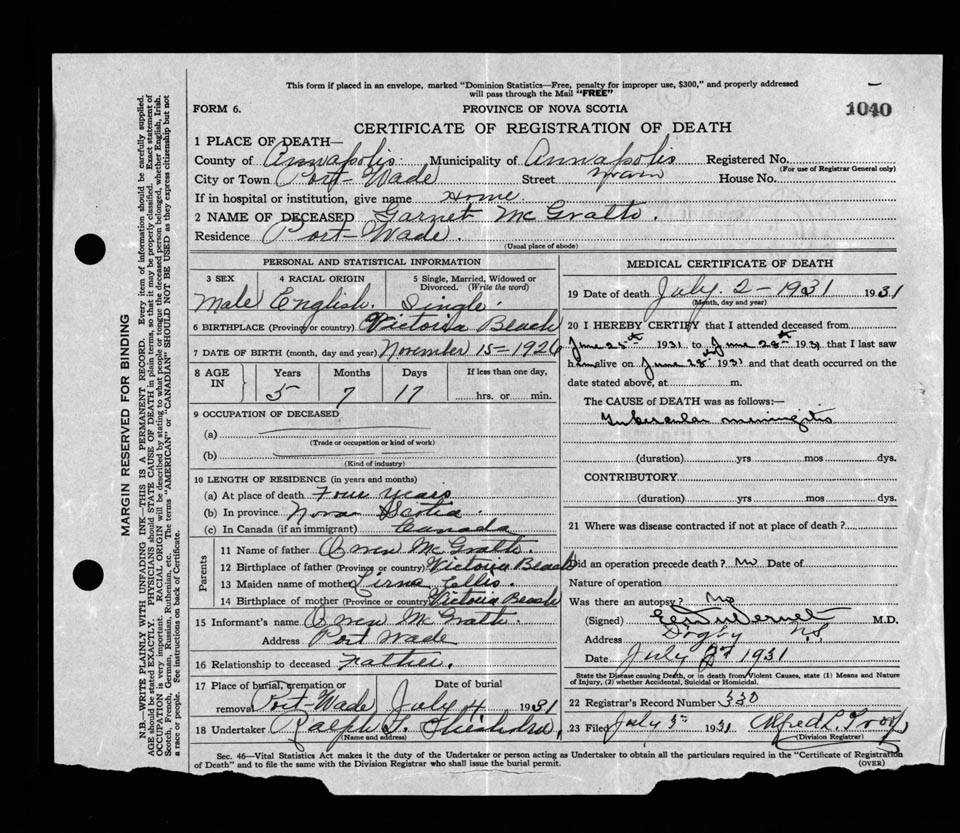 This form if placed in an envelope, marked "Dominion Statistics—Free, penalty for improper use, $300," and properly addressed
will pass through the Mail "FREE"
FORM 6.
PROVINCE OF NOVA SCOTIA
1040
CERTIFICATE OF REGISTRATION OF DEATH
1 PLACE OF DEATH—
County of Annapolis Municipality of Annapolis Registered No.
(For use of Registrar General only)
City or Town Port-Wade Street Main House No.
If in hospital or institution, give name Home
2 NAME OF DECEASED Garnet McGrath.
Residence Port-Wade.
(Usual place of abode)
PERSONAL AND STATISTICAL INFORMATION
3 SEX 4 RACIAL ORIGIN 5 Single, Married, Widowed or Divorced. (Write the word)
Male English. Single.
6 BIRTHPLACE (Province or country) Victoria Beach
7 DATE OF BIRTH (month, day and year) November 15-1926
8 AGE IN Years Months Days If less than one day,
5 7 17 hrs. or min.
9 OCCUPATION OF DECEASED
(a)
(Trade or occupation or kind of work)
(b)
(Kind of industry)
10 LENGTH OF RESIDENCE (in years and months)
(a) At place of death Four years
(b) In province Nova Scotia.
(c) In Canada (if an immigrant) Canada
Parents
11 Name of father Owen McGrath.
12 Birthplace of father (Province or country) Victoria Beach
13 Maiden name of mother Ellis.
14 Birthplace of mother (Province or country) Victoria Beach
15 Informant's name Owen McGrath.
Address Port Wade
16 Relationship to deceased Father.
17 Place of burial, cremation or removal Port-Wade Date of burial July 4 1931
18 Undertaker Ralph
(Name and address)
MEDICAL CERTIFICATE OF DEATH
19 Date of death July. 2-1931 1931
(Month, day and year)
20 I HEREBY CERTIFY that I attended deceased from
June 25th 1931 to June 28th 1931 that I last saw
him alive on June 28th 1931 and that death occurred on the
date stated above, at m.
The CAUSE of DEATH was as follows:—
Tubercular meningitis
(duration) yrs mos dys.
CONTRIBUTORY
(duration) yrs mos dys.
21 Where was disease contracted if not at place of death?
Did an operation precede death? No Date of
Nature of operation
Was there an autopsy? No
(Signed) M.D.
Address Digby N.S.
Date July 1931
State the Disease causing Death, or in death from Violent Causes, state (1) Means and Nature
of Injury, (2) whether Accidental, Suicidal or Homicidal.
22 Registrar's Record Number 330
23 Filed July 3rd 1931 Alfred L.
(Division Registrar)
Sec. 46—Vital Statistics Act makes it the duty of the Undertaker or person acting as Undertaker to obtain all the particulars required in the "Certificate of Registration
of Death" and to file the same with the Division Registrar who shall issue the burial permit.
(OVER)
MARGIN RESERVED FOR BINDING
N.B.—WRITE PLAINLY WITH UNFADING INK—THIS IS A PERMANENT RECORD. Every item of information should be carefully supplied.
AGE should be stated EXACTLY. PHYSICIANS should STATE CAUSE OF DEATH in plain terms, so that it may be properly classified. Exact statement of
OCCUPATION is very important. RACIAL ORIGIN will be described by stating to what people or tongue the deceased person belonged, whether English, Irish,
Scotch, French, German, Russian, Ruthenian, etc. The terms "AMERICAN" or "CANADIAN" SHOULD NOT BE USED as they express citizenship but not
a race or people. See instructions on back of Certificate.